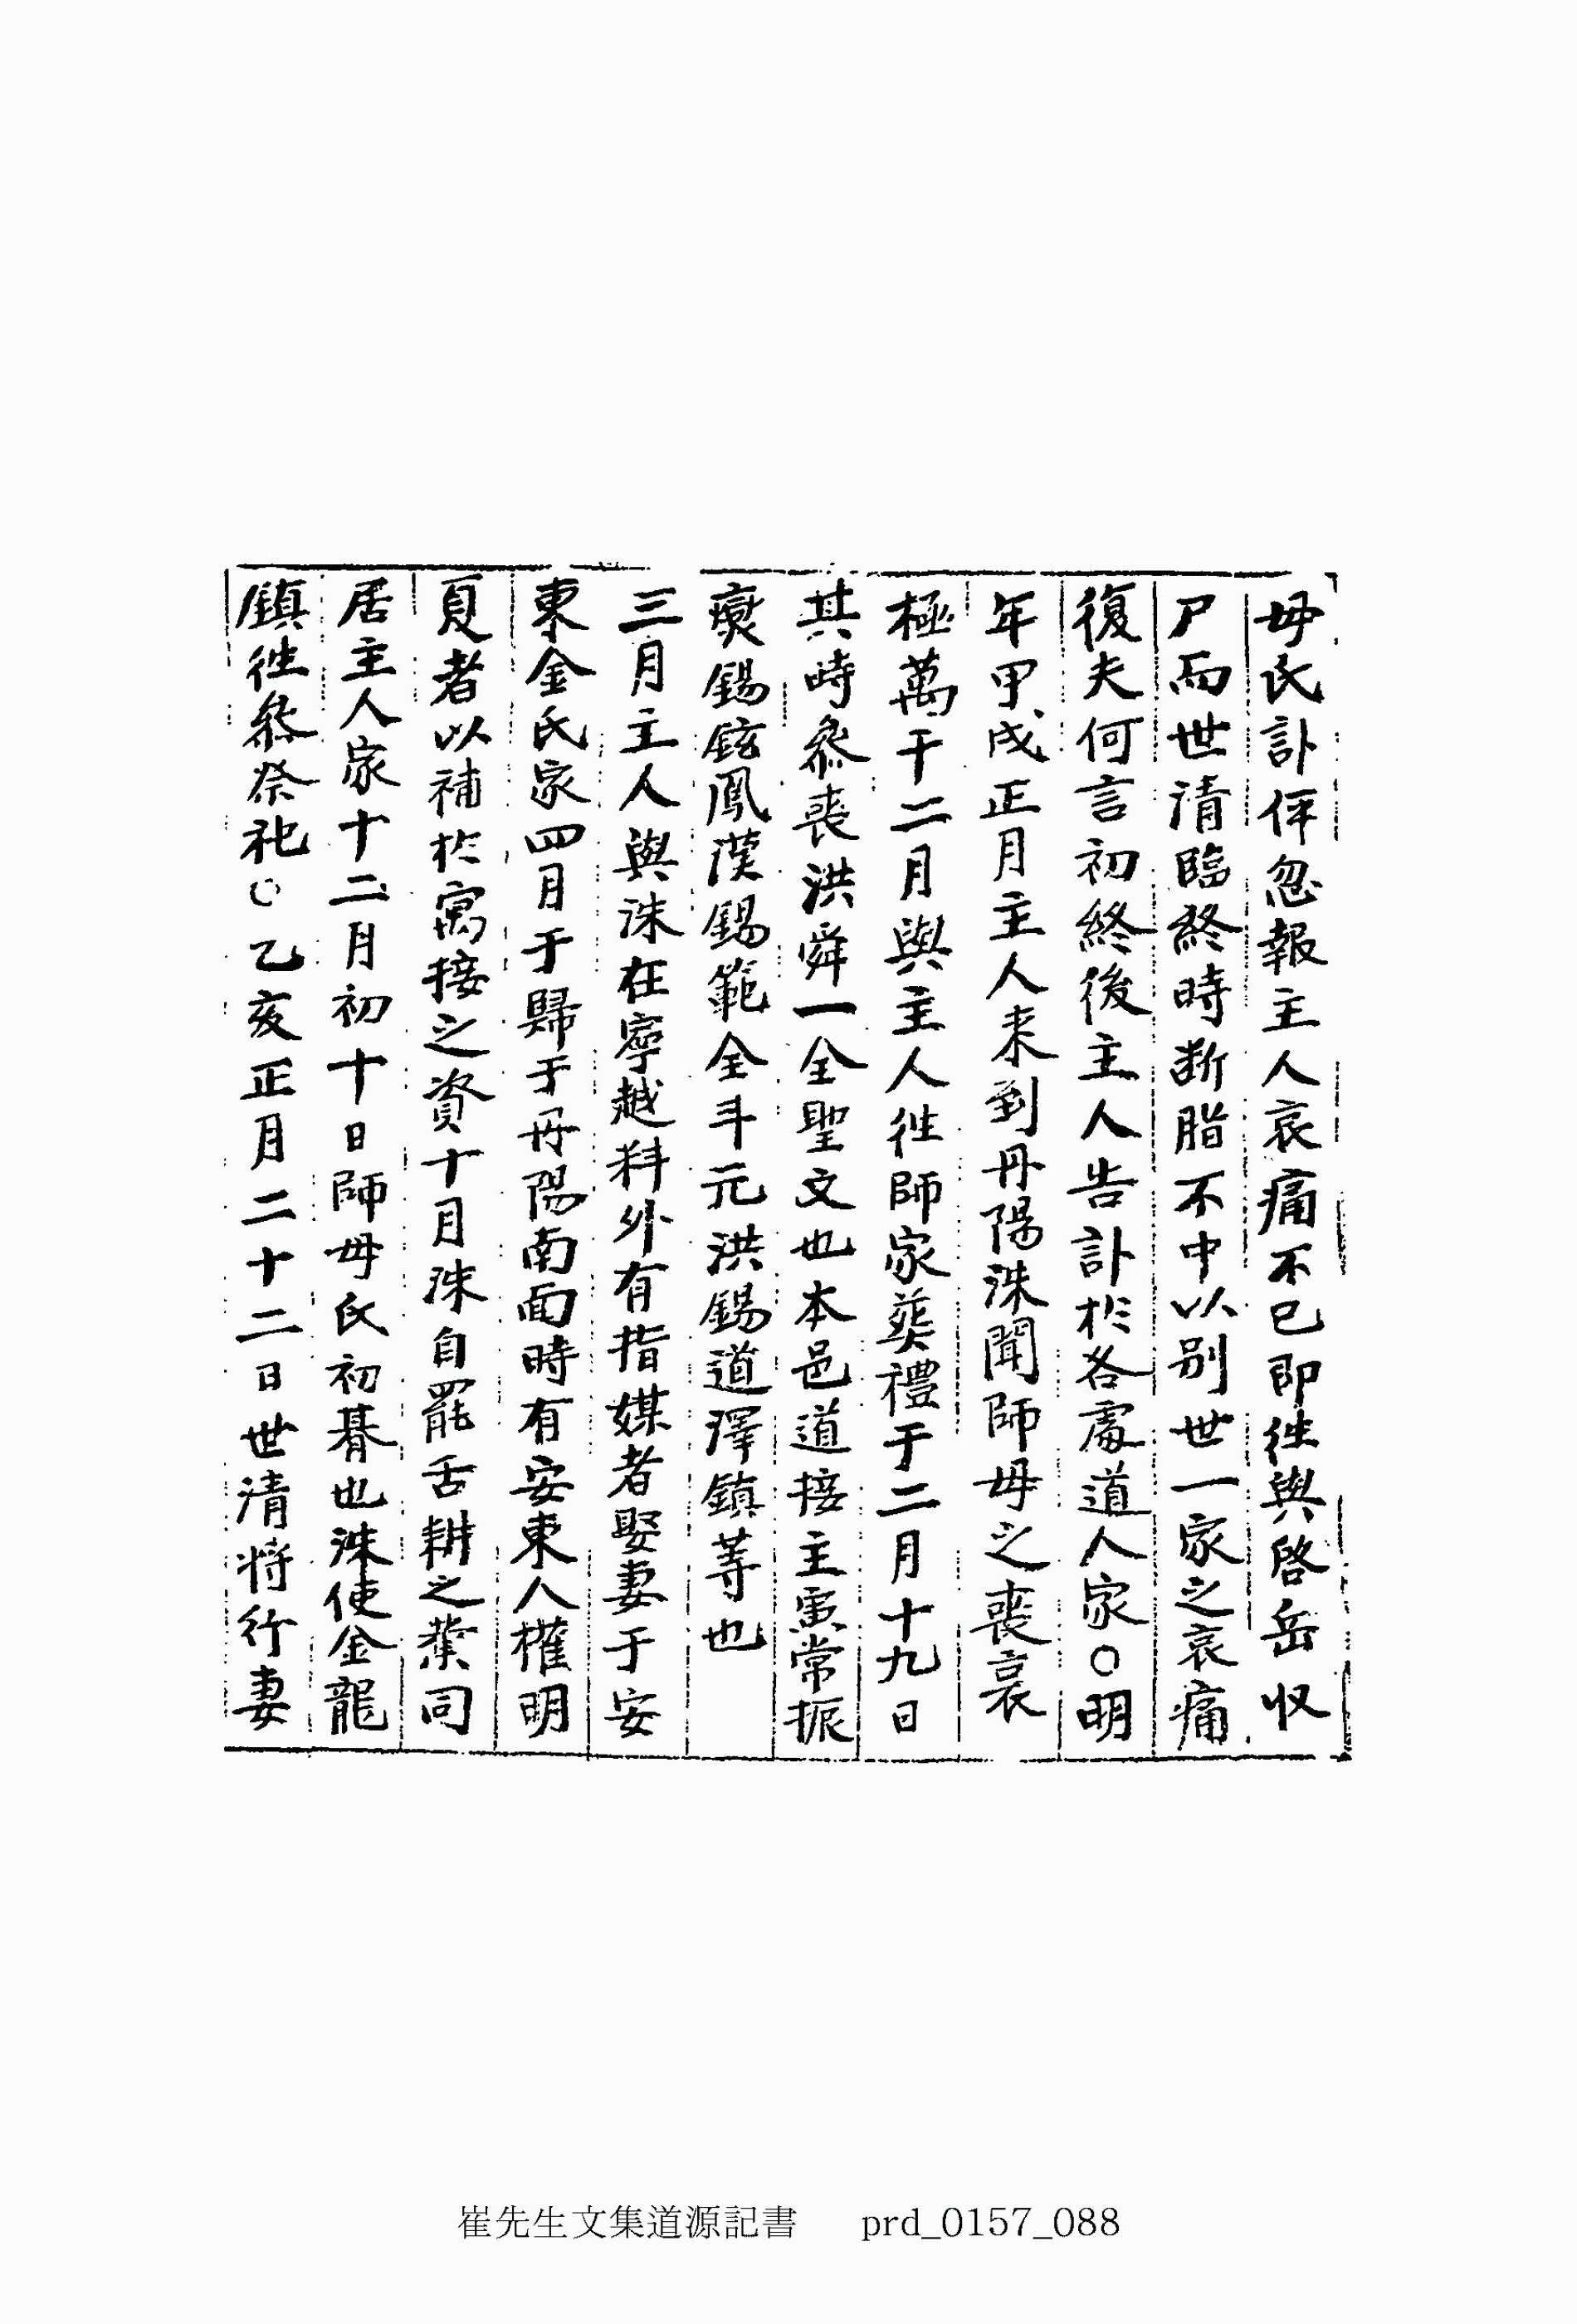 毋氏訃伻忽報主人哀痛不已卽徃與啓岳収
尸而世清臨終時断脂不中以別世一家之哀痛
復夫何言初終後主人告訃於各處道人家○明
年甲戌正月主人来到丹陽洙聞師母之丧哀
極萬干二月與主人徃師家葬禮于二月十九日
其時叅丧洪舜一全聖文也本邑道接主寅常振
爕錫鉉鳳漢錫範全斗元洪錫道澤鎮等也
三月主人與洙在寧越料外有指媒者娶妻于安
東金氏家四月于歸于丹陽南面時有安東人權明
夏者以補於寓接之資十月洙自罷舌耕之業同
居主人家十二月初十日師母氏初朞也洙使金龍
鎮徃叅祭祀○乙亥正月二十二日世清将行妻
崔先生文集道源記書 prd_0157_088